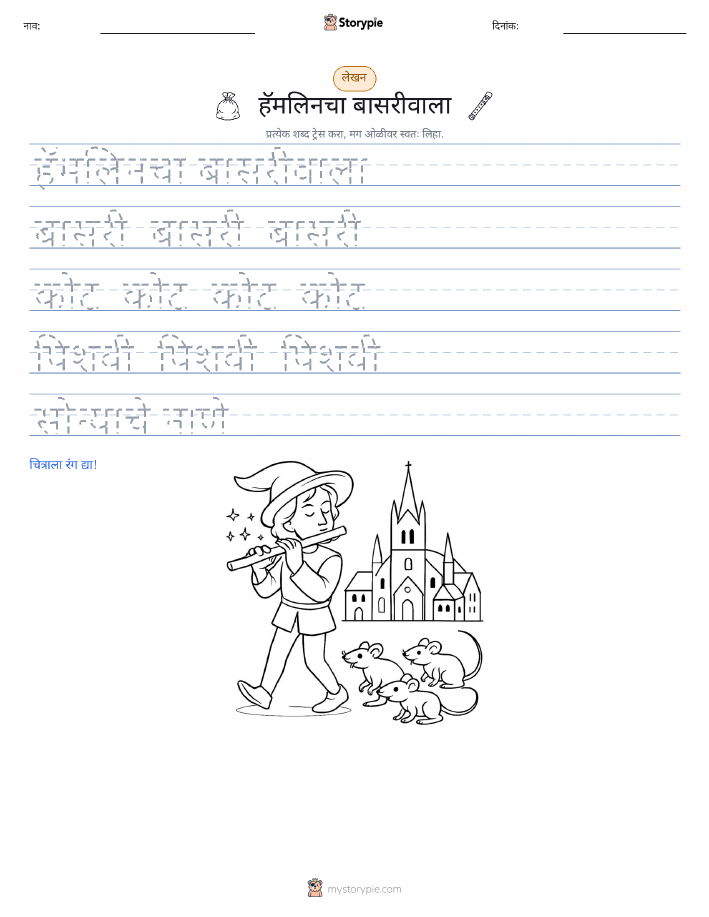 नाव:
Storypie
दिनांक:
लेखन
हॅमलिनचा बासरीवाला
प्रत्येक शब्द ट्रेस करा, मग ओळीवर स्वतः लिहा.
हॅमलिनचा बासरीवाला
बासरी बासरी बासरी
कोट कोट कोट कोट
पिशवी पिशवी पिशवी
सोन्याचे नाणे
चित्राला रंग द्या!
mystorypie.com